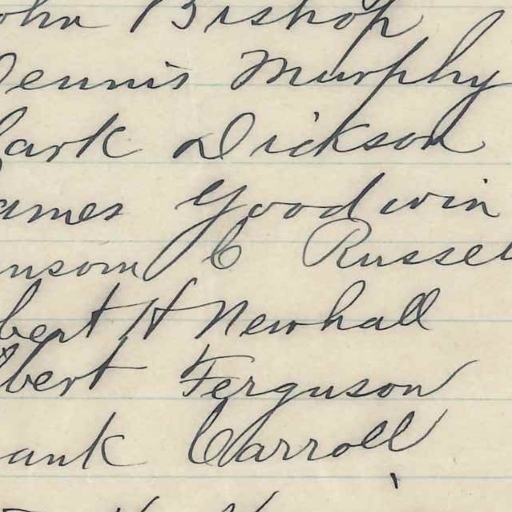 ohn Bishop
Dennis Murphy
Clark Dickson
ames Goodwin
nsom C Russel
bert H Newhall
lbert Ferguson
ank Carroll